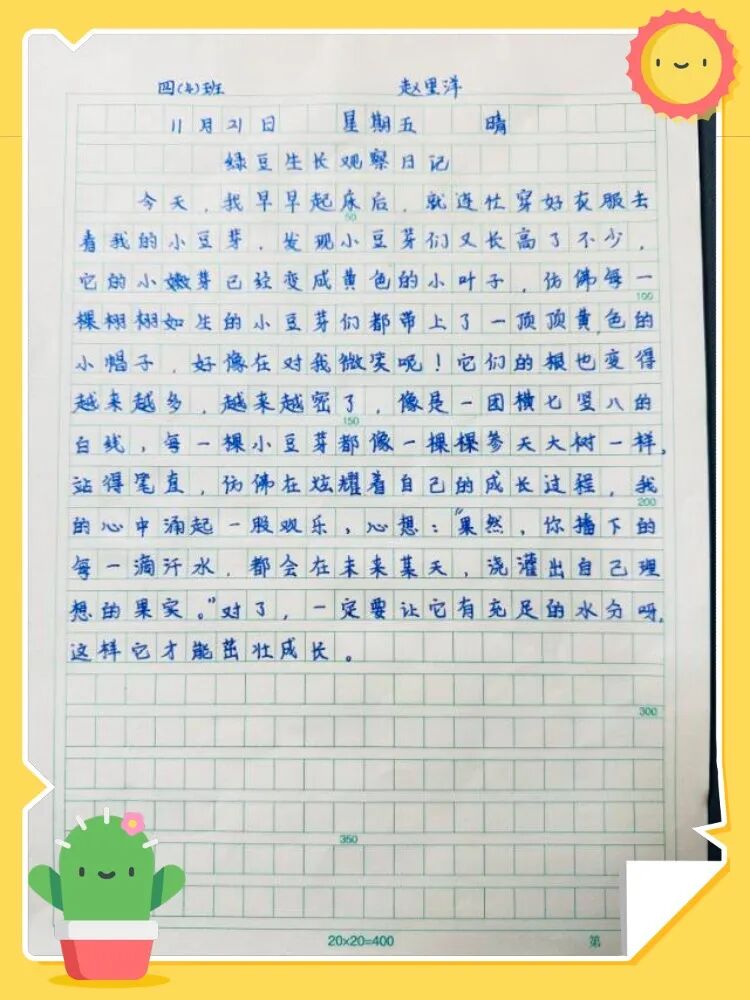 四(4)班 赵里洋
11月21日 星期五 晴
绿豆生长观察日记
今天，我早早起床后，就连忙穿好衣服去
看我的小豆芽，发现小豆芽们又长高了不少，
它的小嫩芽已经变成黄色的小叶子，仿佛每一
棵栩栩如生的小豆芽们都带上了一顶顶黄色的
小帽子，好像在对我微笑呢！它们的根也变得
越来越多，越来越密了，像是一团横七竖八的
白线，每一棵小豆芽都像一棵棵参天大树一样，
站得笔直，仿佛在炫耀着自己的成长过程，我
的心中涌起一股欢乐，心想：“果然，你播下的
每一滴汗水，都会在未来某天，浇灌出自己理
想的果实。”对了，一定要让它有充足的水分呀，
这样它才能茁壮成长。
50
100
150
200
300
350
20×20=400 第